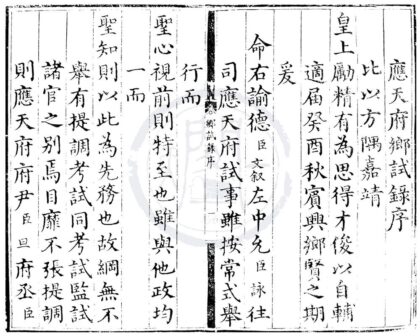 應天府鄉試錄序
比以方隅嘉靖
皇上勵精有為思得才俊以自輔
適屆癸酉秋賓興鄉賢之期
爰
命右諭德臣文敘左中允臣詠往
司應天府試事雖按常式舉
行而
聖心視前則特至也雖與他政均
一而
聖知則以此為先務也故綱無不
舉有提調考試同考試監試
諸官之別焉目靡不張提調
則應天府府尹臣旦府丞臣
鄉試錄序